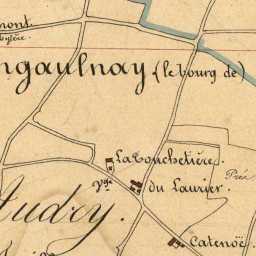 mont
ngaulnay (le bourg de)
La Touchetière
Prée
Vge du Laurier
Audry.
Catenoë